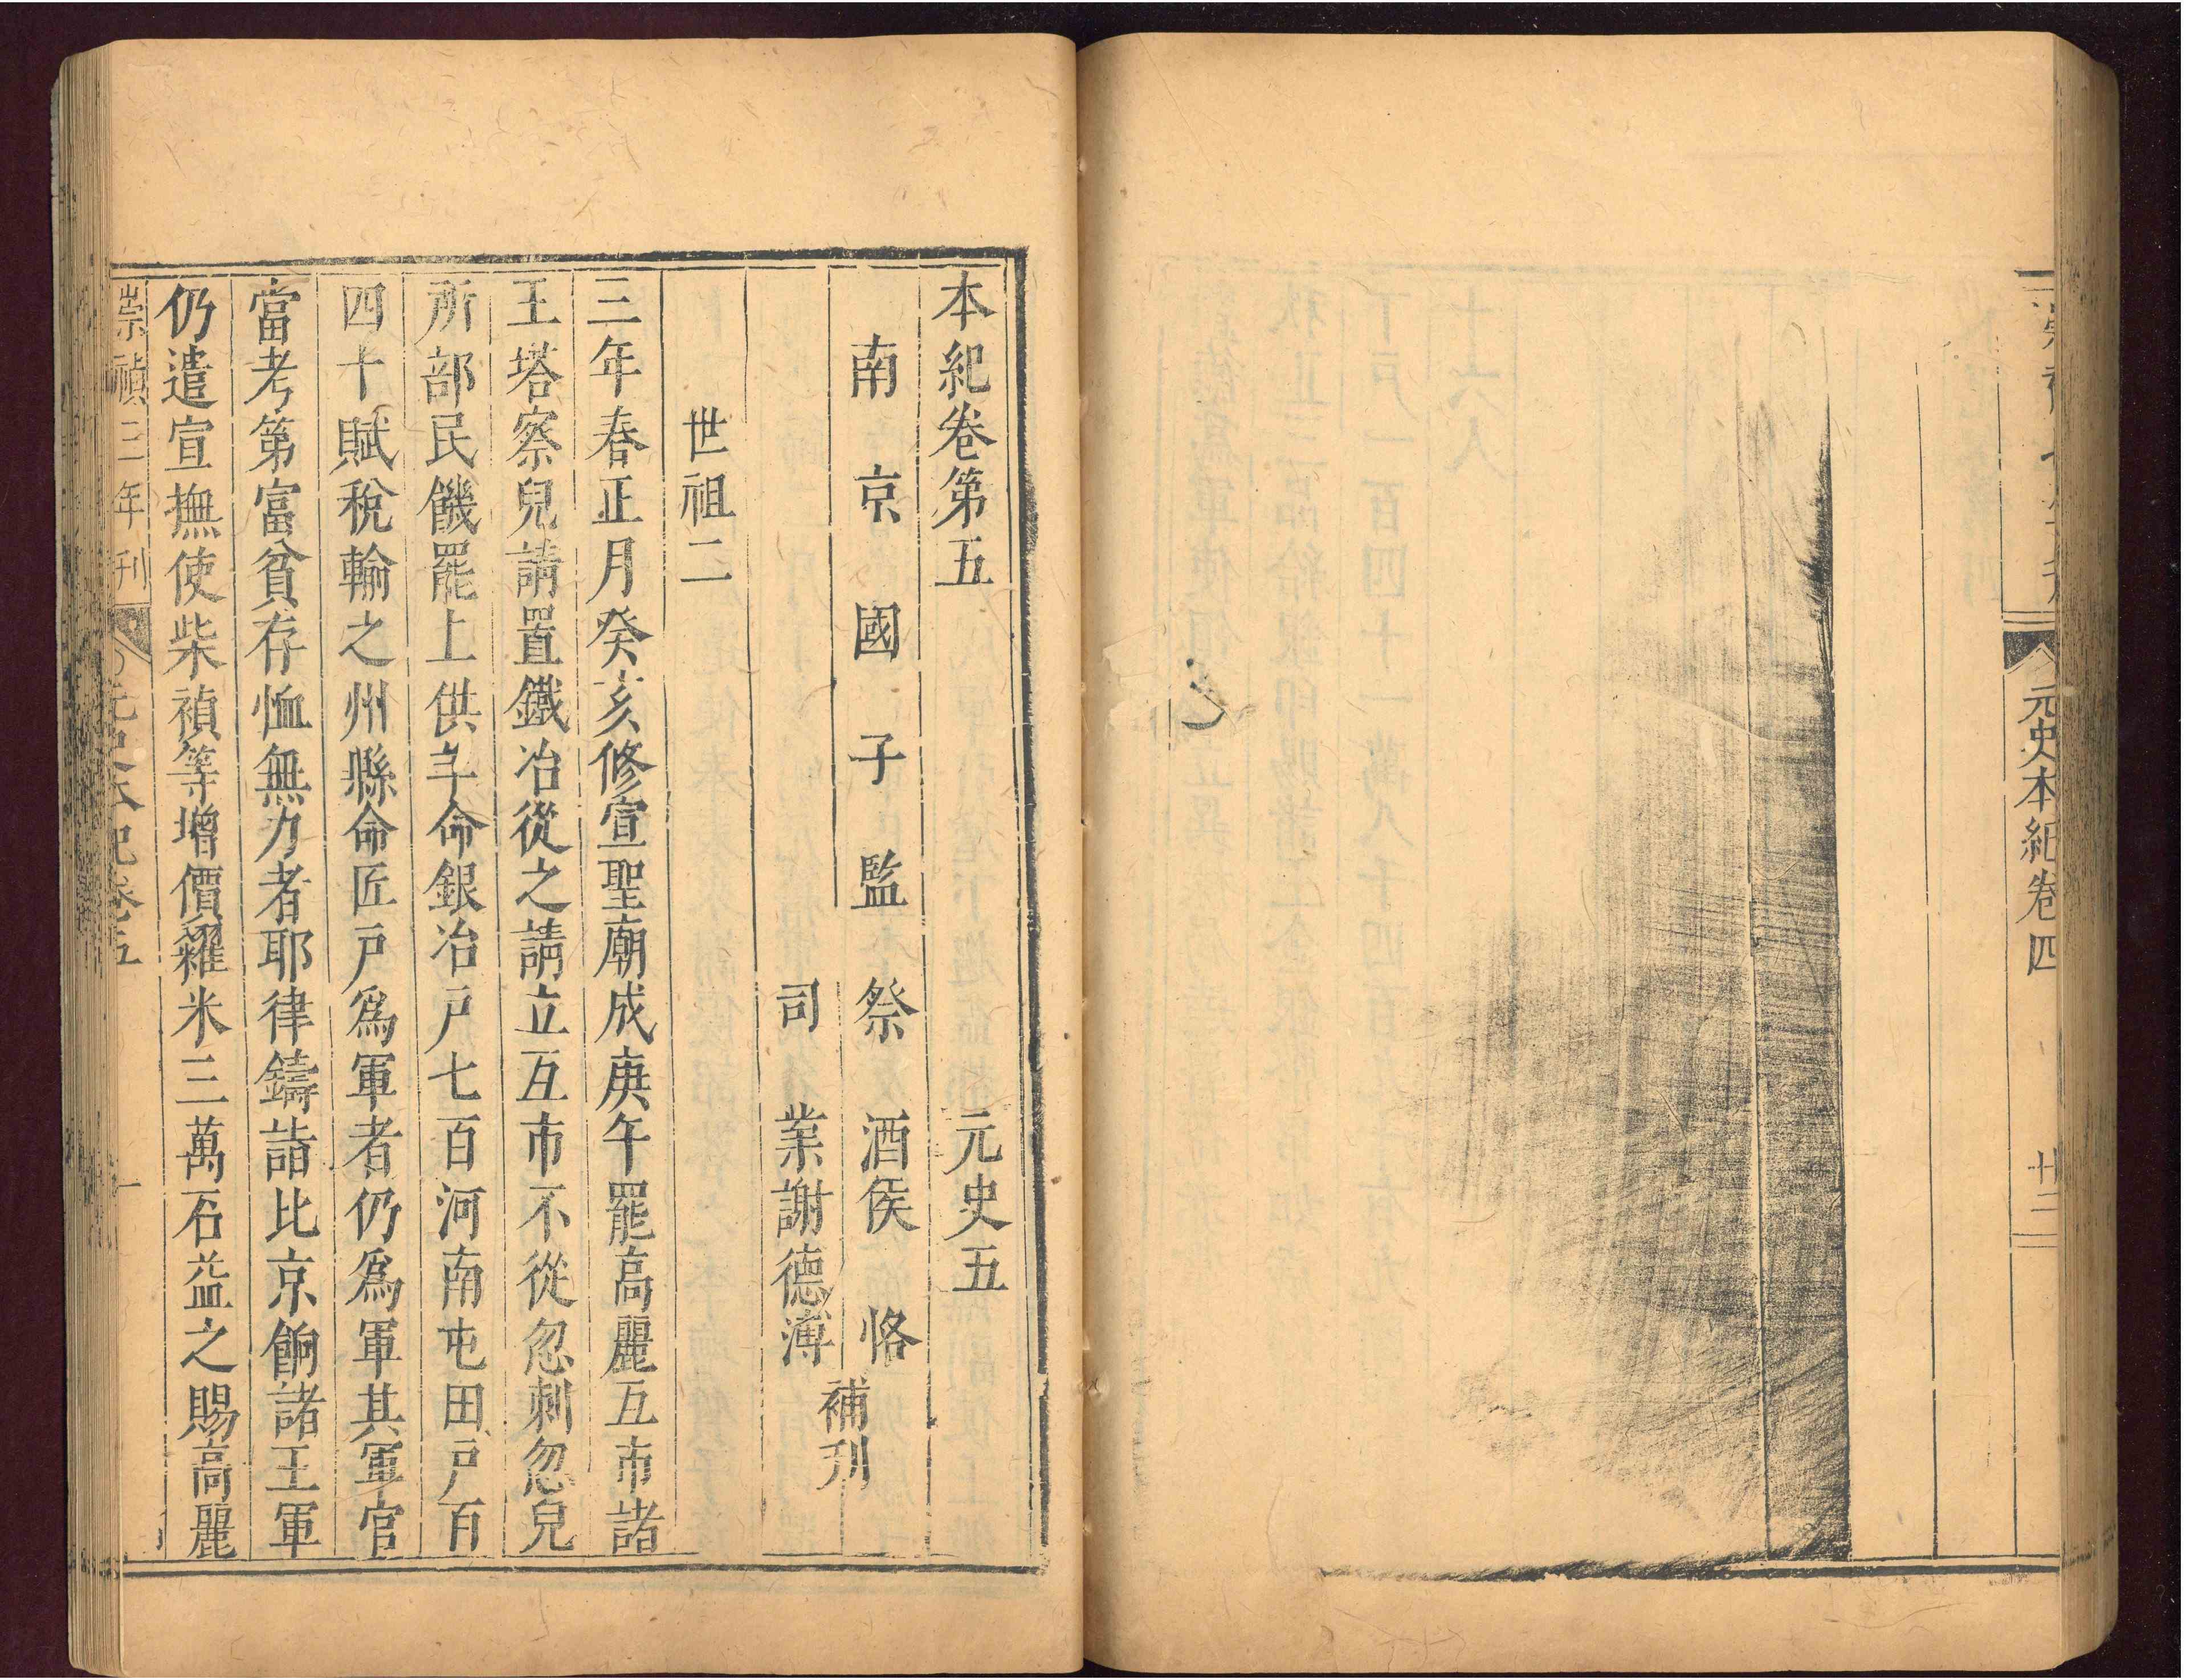 元史本紀卷四
廿三
本紀卷第五 元史五
南京國子監祭酒侯恪
司業謝德溥
補刋
世祖二
三年春正月癸亥修宣聖廟成庚午罷高麗互市諸
王塔察兒請置鐵冶從之請立互市不從忽刺忽兒
所部民饑罷上供羊命銀冶戶七百河南屯田戶百
四十賦稅輸之州縣命匠戶爲軍者仍爲軍其軍官
當考第富貧存恤無力者耶律鑄詣北京餉諸王軍
仍遣宣撫使柴禎等增價糴米三萬石益之賜高麗
崇禎三年刋
元史本紀卷五
一